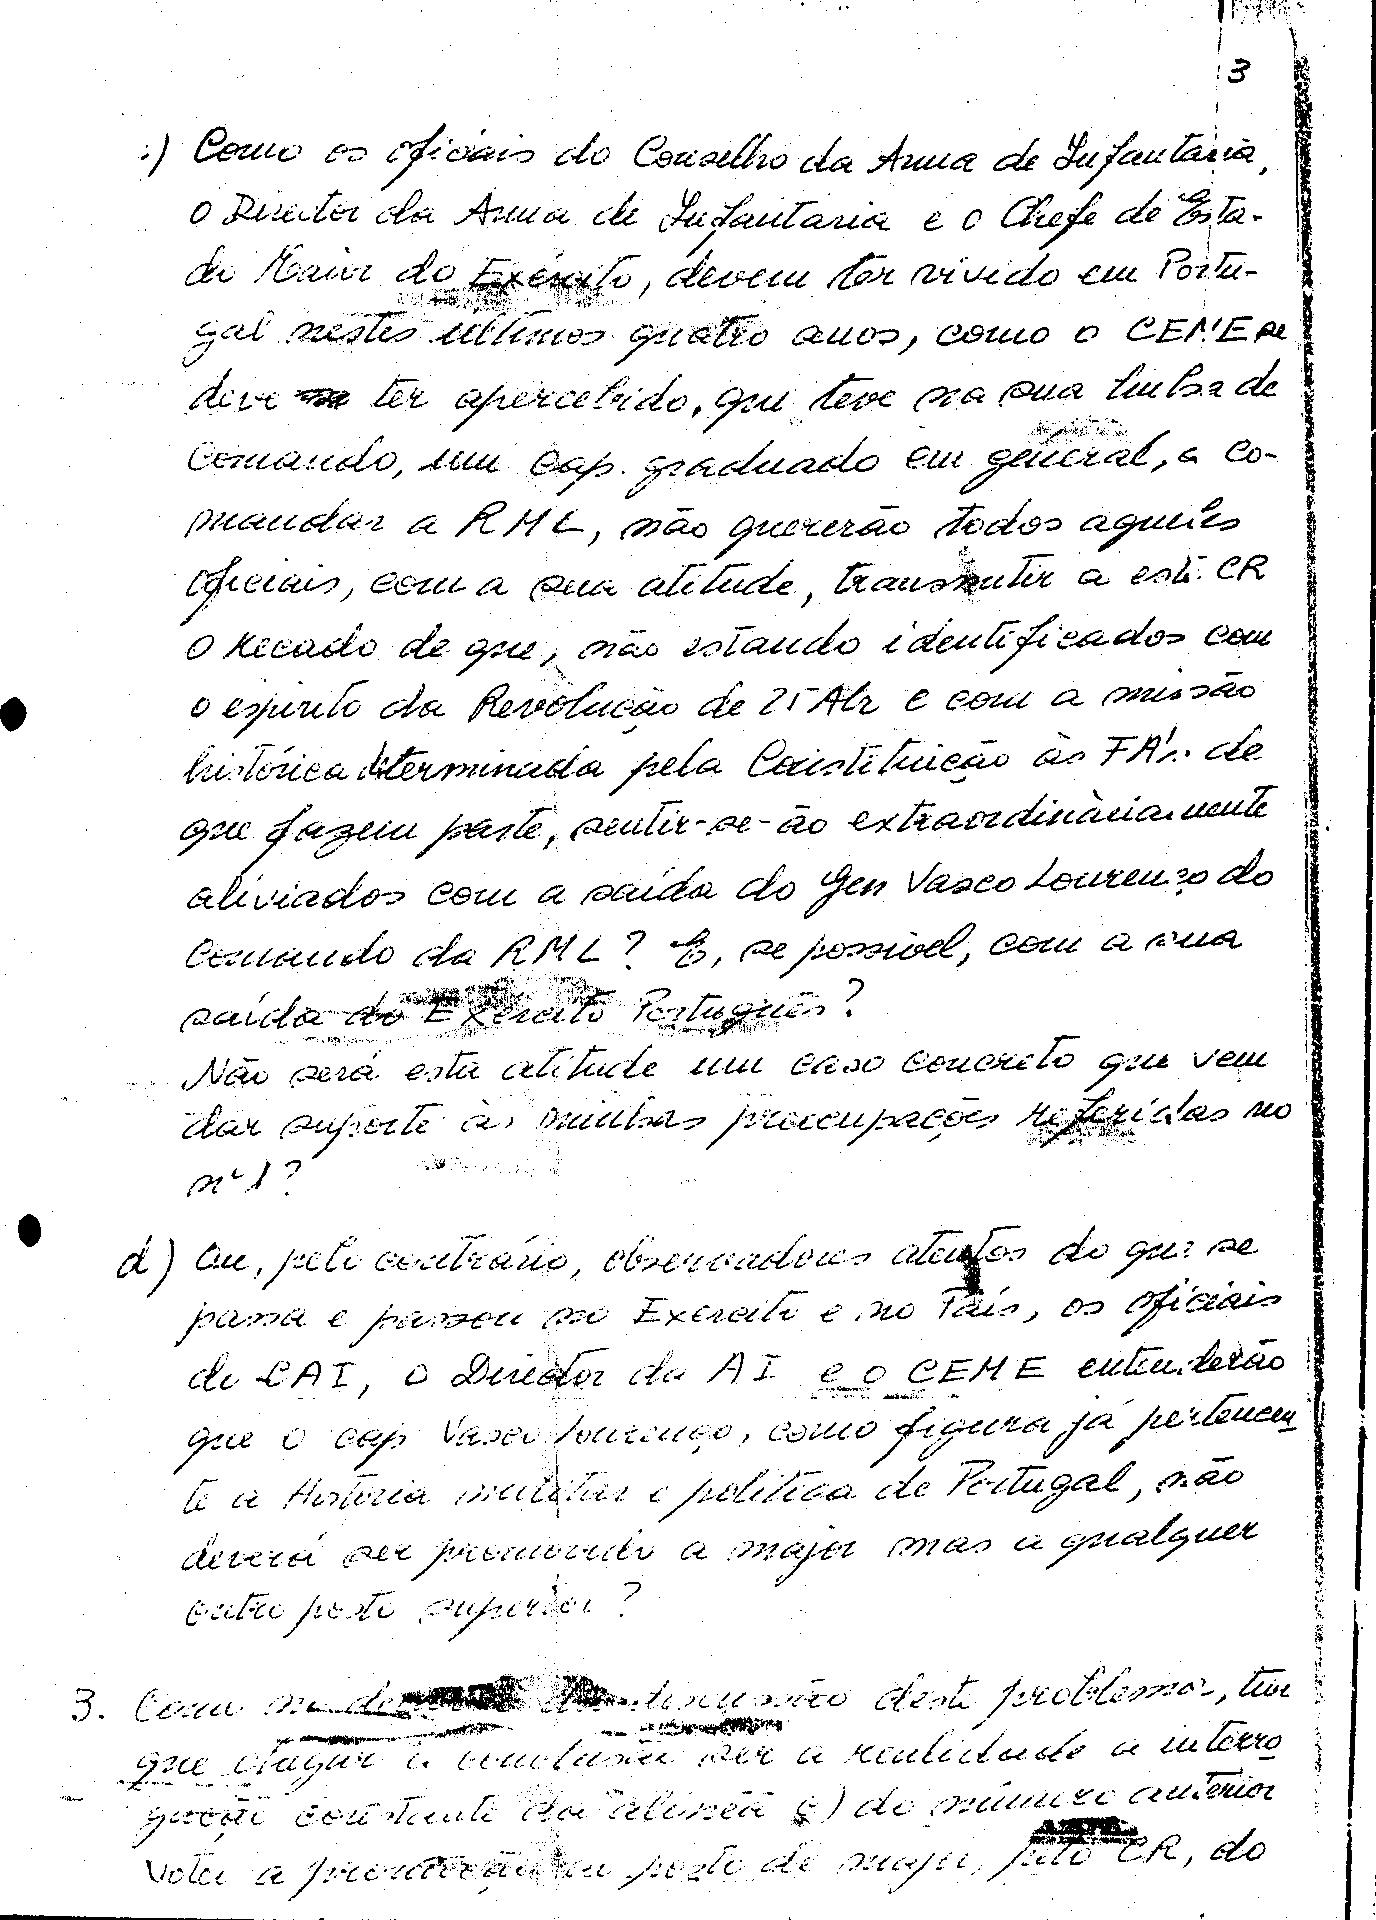 3
c) Como os oficiais do Conselho da Arma de Infantaria,
o Director da Arma de Infantaria e o Chefe de Esta-
do Maior do Exército, devem ter vivido em Portu-
gal nestes últimos quatro anos, como o CEME se
deve ter apercebido, que teve na sua linha de
Comando, um cap. graduado em general, a co-
mandar a RML, não quererão todos aqueles
oficiais, com a sua atitude, transmitir a este CR
o recado de que, não estando identificados com
o espirito da Revolução de 25 Abr e com a missão
histórica determinada pela Constituição às FA's. de
que fazem parte, sentir-se-ão extraordinàriamente
aliviados com a saída do Gen Vasco Lourenço do
Comando da RML? E, se possivel, com a sua
saída do Exército Português?
Não será esta atitude um caso concreto que vem
dar suporte às minhas preocupações referidas no
nº 1?
d) Ou, pelo contrário, observadores atentos do que se
passa e passou no Exército e no País, os oficiais
do CAI, o Director da AI e o CEME entenderão
que o cap Vasco Lourenço, como figura já pertencen
te a História militar e politica de Portugal, não
deverá ser promovido a major mas a qualquer
outro posto superior?
3. Como no discussão deste problema, tive
que chegar à conclusão ser a realidade a interro
gação constante da alínea c) do número anterior
Votei a promoção ao posto de major, pelo CR, do